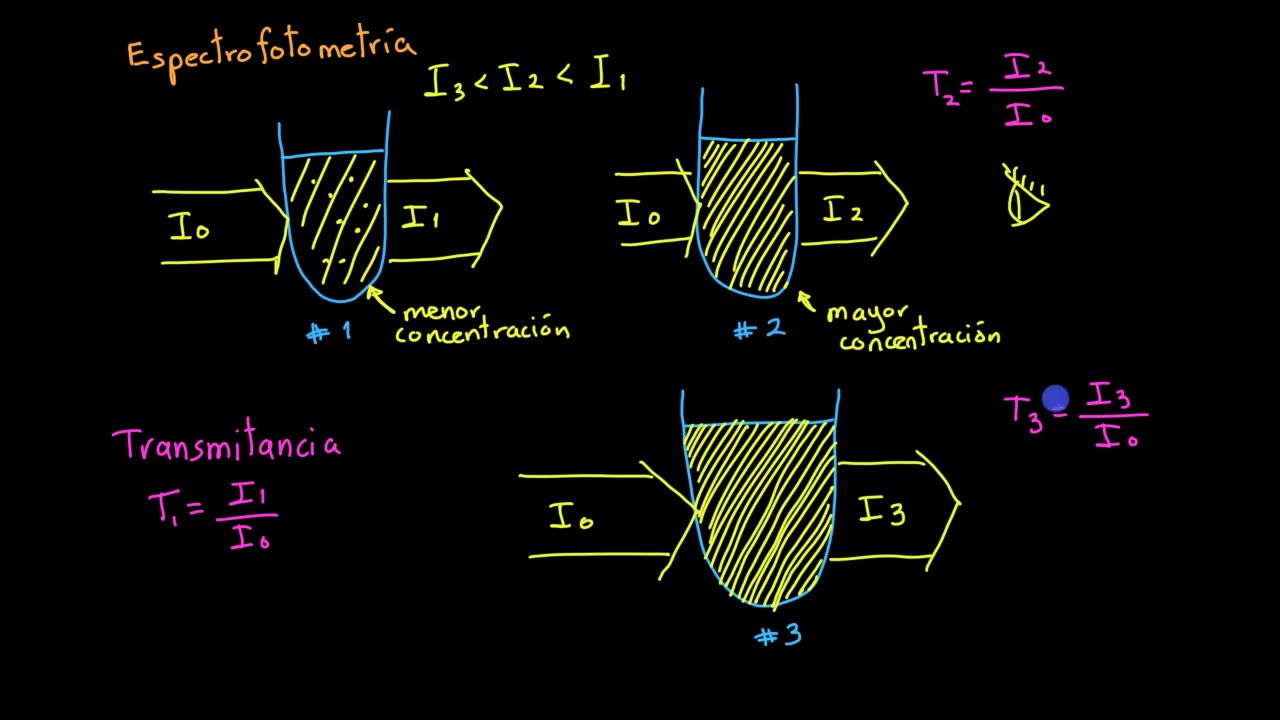 Espectrofotometría
I3 < I2 < I1
T2 = I2 / I0
I0
I1
I0
I2
menor
concentración
#1
mayor
concentración
#2
Transmitancia
T1 = I1 / I0
T3 = I3 / I0
I0
I3
#3